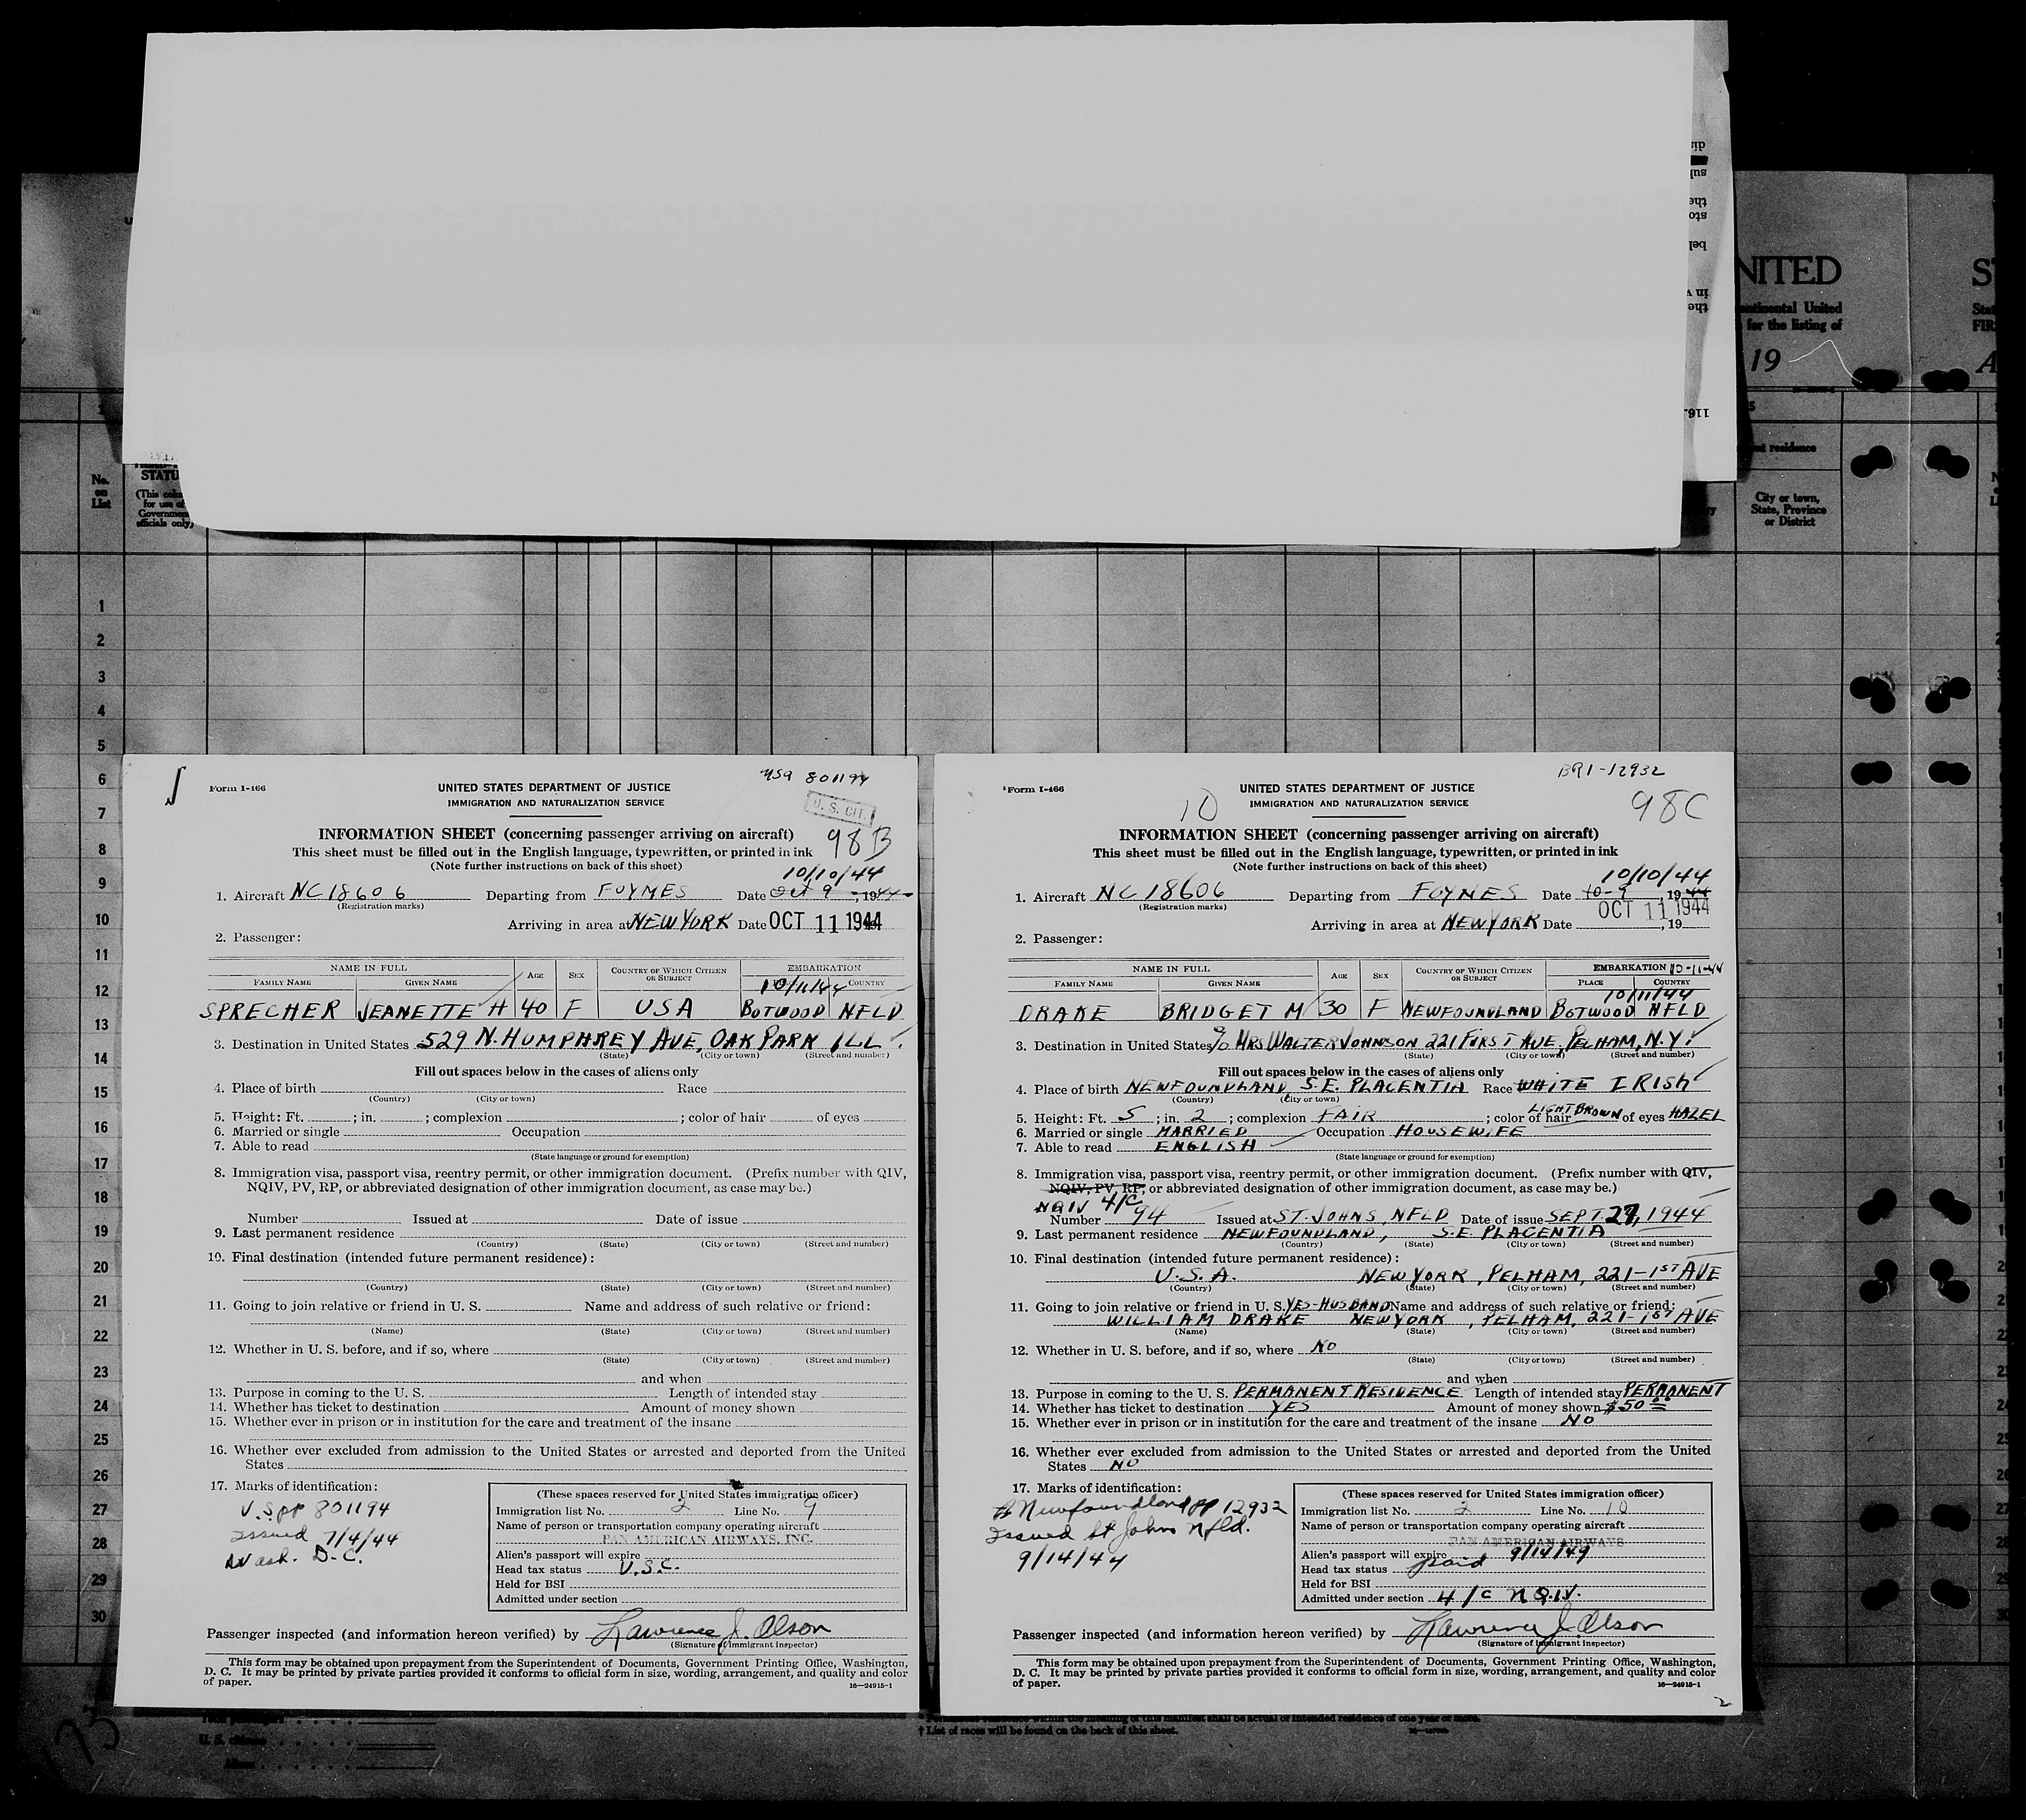 NITED
ontinental United
for the listing of
19
No.
on
List
STATU
(This colu
for use of
Governmen
officials only)
residence
City or town,
State, Province
or District
1
2
3
4
5
6
7
8
9
10
11
12
13
14
15
16
17
18
19
20
21
22
23
24
25
26
27
28
29
30
USA 801194
Form I-466
UNITED STATES DEPARTMENT OF JUSTICE
IMMIGRATION AND NATURALIZATION SERVICE
U. S. CIT.
98 B
INFORMATION SHEET (concerning passenger arriving on aircraft)
This sheet must be filled out in the English language, typewritten, or printed in ink
(Note further instructions on back of this sheet)
10/10/44
1. Aircraft NC 18606 Departing from FOYMES Date Oct 9, 1944
(Registration marks)
Arriving in area at NEW YORK Date OCT 11 1944
2. Passenger:
NAME IN FULL AGE SEX COUNTRY OF WHICH CITIZEN OR SUBJECT EMBARKATION
FAMILY NAME GIVEN NAME 10/11/44 COUNTRY
SPRECHER JEANETTE H 40 F USA BOTWOOD NFLD
3. Destination in United States 529 N. HUMPHREY AVE, OAK PARK ILL.
(State) (City or town) (Street and number)
Fill out spaces below in the cases of aliens only
4. Place of birth Race
(Country) (City or town)
5. Height: Ft. ; in. ; complexion ; color of hair of eyes
6. Married or single Occupation
7. Able to read
(State language or ground for exemption)
8. Immigration visa, passport visa, reentry permit, or other immigration document. (Prefix number with QIV,
NQIV, PV, RP, or abbreviated designation of other immigration document, as case may be.)
Number Issued at Date of issue
9. Last permanent residence
(Country) (State) (City or town) (Street and number)
10. Final destination (intended future permanent residence):
(Country) (State) (City or town) (Street and number)
11. Going to join relative or friend in U. S. Name and address of such relative or friend:
(Name) (State) (City or town) (Street and number)
12. Whether in U. S. before, and if so, where
(State) (City or town) (Street and number)
and when
13. Purpose in coming to the U. S. Length of intended stay
14. Whether has ticket to destination Amount of money shown
15. Whether ever in prison or in institution for the care and treatment of the insane
16. Whether ever excluded from admission to the United States or arrested and deported from the United
States
17. Marks of identification:
U.S pp 801194
Issued 7/4/44
Wash. D.C.
(These spaces reserved for United States immigration officer)
Immigration list No. 2 Line No. 9
Name of person or transportation company operating aircraft
PAN AMERICAN AIRWAYS, INC.
Alien's passport will expire
Head tax status U.S.C.
Held for BSI
Admitted under section
Passenger inspected (and information hereon verified) by Lawrence J. Olson
(Signature of immigrant inspector)
This form may be obtained upon prepayment from the Superintendent of Documents, Government Printing Office, Washington,
D. C. It may be printed by private parties provided it conforms to official form in size, wording, arrangement, and quality and color
of paper.
16—24915-1
BRI-12932
Form I-466
10
UNITED STATES DEPARTMENT OF JUSTICE
IMMIGRATION AND NATURALIZATION SERVICE
98C
INFORMATION SHEET (concerning passenger arriving on aircraft)
This sheet must be filled out in the English language, typewritten, or printed in ink
(Note further instructions on back of this sheet)
10/10/44
1. Aircraft NC 18606 Departing from FOYNES Date 10-9, 1944
(Registration marks)
OCT 11 1944
Arriving in area at NEW YORK Date , 19
2. Passenger:
NAME IN FULL AGE SEX COUNTRY OF WHICH CITIZEN OR SUBJECT EMBARKATION 10-11-44
FAMILY NAME GIVEN NAME PLACE COUNTRY
10/11/44
DRAKE BRIDGET M 30 F NEWFOUNDLAND BOTWOOD NFLD
3. Destination in United States c/o MRS WALTER JOHNSON 221 FIRST AVE, PELHAM, N.Y.
(State) (City or town) (Street and number)
Fill out spaces below in the cases of aliens only
4. Place of birth NEWFOUNDLAND, S.E. PLACENTIA Race WHITE IRISH
(Country) (City or town)
5. Height: Ft. 5 ; in. 2 ; complexion FAIR ; color of hair LIGHT BROWN of eyes HAZEL
6. Married or single MARRIED Occupation HOUSEWIFE
7. Able to read ENGLISH
(State language or ground for exemption)
8. Immigration visa, passport visa, reentry permit, or other immigration document. (Prefix number with QIV,
NQIV, PV, RP, or abbreviated designation of other immigration document, as case may be.)
NQIV 4/C
Number 94 Issued at ST. JOHNS, NFLD Date of issue SEPT 27, 1944
9. Last permanent residence NEWFOUNDLAND, S.E. PLACENTIA
(Country) (State) (City or town) (Street and number)
10. Final destination (intended future permanent residence):
U.S.A. NEW YORK, PELHAM, 221-1ST AVE
(Country) (State) (City or town) (Street and number)
11. Going to join relative or friend in U. S. YES-HUSBAND Name and address of such relative or friend:
WILLIAM DRAKE NEW YORK, PELHAM, 221-1ST AVE
(Name) (State) (City or town) (Street and number)
12. Whether in U. S. before, and if so, where NO
(State) (City or town) (Street and number)
and when
13. Purpose in coming to the U. S. PERMANENT RESIDENCE Length of intended stay PERMANENT
14. Whether has ticket to destination YES Amount of money shown $50 00
15. Whether ever in prison or in institution for the care and treatment of the insane NO
16. Whether ever excluded from admission to the United States or arrested and deported from the United
States NO
17. Marks of identification:
Newfoundland pp 12932
Issued St Johns Nfld.
9/14/44
(These spaces reserved for United States immigration officer)
Immigration list No. 2 Line No. 10
Name of person or transportation company operating aircraft
PAN AMERICAN AIRWAYS
Alien's passport will expire 9/14/49
Head tax status paid
Held for BSI
Admitted under section 4/c NQIV.
Passenger inspected (and information hereon verified) by Lawrence J. Olson
(Signature of immigrant inspector)
This form may be obtained upon prepayment from the Superintendent of Documents, Government Printing Office, Washington,
D. C. It may be printed by private parties provided it conforms to official form in size, wording, arrangement, and quality and color
of paper.
16—24915-1
2
173
U. S. citizens
Aliens
† List of races will be found on the back of this sheet.